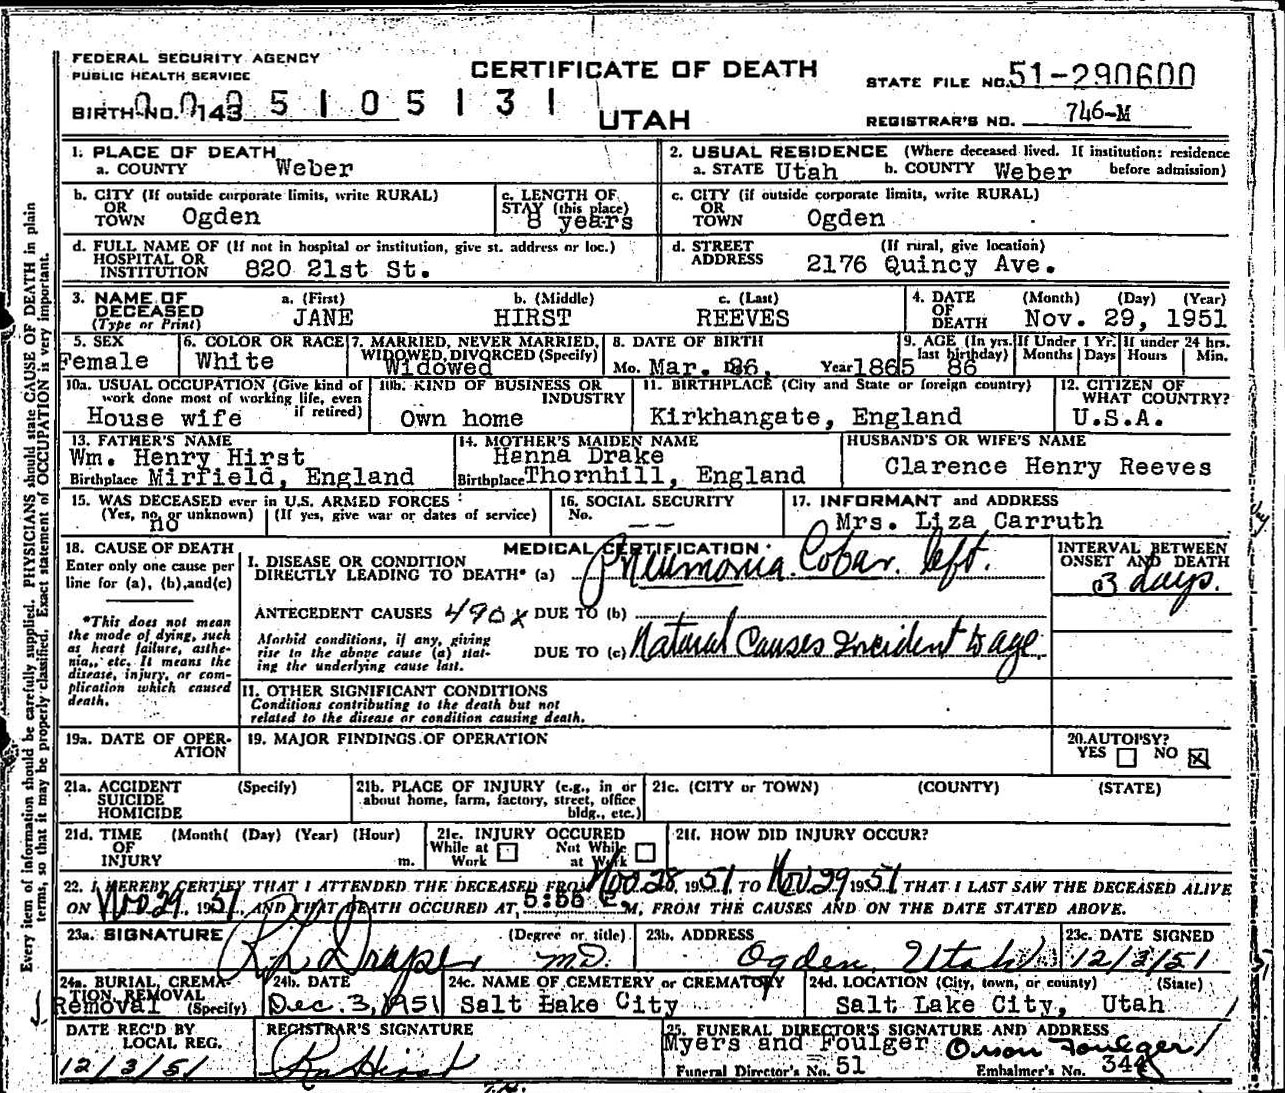 FEDERAL SECURITY AGENCY
PUBLIC HEALTH SERVICE
CERTIFICATE OF DEATH
UTAH
STATE FILE NO. 51-290600
BIRTH NO. 143
REGISTRAR'S NO. 746-M
1. PLACE OF DEATH
a. COUNTY Weber
2. USUAL RESIDENCE (Where deceased lived. If institution: residence before admission)
a. STATE Utah b. COUNTY Weber
b. CITY (If outside corporate limits, write RURAL) OR TOWN Ogden
c. LENGTH OF STAY (this place) 8 years
c. CITY (if outside corporate limits, write RURAL) OR TOWN Ogden
d. FULL NAME OF (If not in hospital or institution, give st. address or loc.) HOSPITAL OR INSTITUTION 820 21st St.
d. STREET ADDRESS (If rural, give location) 2176 Quincy Ave.
3. NAME OF DECEASED (Type or Print) a. (First) JANE b. (Middle) HIRST c. (Last) REEVES
4. DATE OF DEATH (Month) (Day) (Year) Nov. 29, 1951
5. SEX Female
6. COLOR OR RACE White
7. MARRIED, NEVER MARRIED, WIDOWED, DIVORCED (Specify) Widowed
8. DATE OF BIRTH Mo. Mar. Year 1865
9. AGE (In yrs. last birthday) 86 If Under 1 Yr. Months Days If under 24 hrs. Hours Min.
10a. USUAL OCCUPATION (Give kind of work done most of working life, even if retired) House wife
10b. KIND OF BUSINESS OR INDUSTRY Own home
11. BIRTHPLACE (City and State or foreign country) Kirkhangate, England
12. CITIZEN OF WHAT COUNTRY? U.S.A.
13. FATHER'S NAME Wm. Henry Hirst
Birthplace Mirfield, England
14. MOTHER'S MAIDEN NAME Hanna Drake
Birthplace Thornhill, England
HUSBAND'S OR WIFE'S NAME
Clarence Henry Reeves
15. WAS DECEASED ever in U.S. ARMED FORCES
(Yes, no, or unknown) no (If yes, give war or dates of service)
16. SOCIAL SECURITY No. --
17. INFORMANT and ADDRESS
Mrs. Liza Carruth
18. CAUSE OF DEATH
Enter only one cause per line for (a), (b), and (c)
*This does not mean the mode of dying, such as heart failure, asthenia, etc. It means the disease, injury, or complication which caused death.
MEDICAL CERTIFICATION
I. DISEASE OR CONDITION DIRECTLY LEADING TO DEATH* (a) Pneumonia. Lobar. left.
INTERVAL BETWEEN ONSET AND DEATH
3 days.
ANTECEDENT CAUSES 490X DUE TO (b)
Morbid conditions, if any, giving rise to the above cause (a) stating the underlying cause last.
DUE TO (c) Natural Causes Incident to age.
11. OTHER SIGNIFICANT CONDITIONS
Conditions contributing to the death but not related to the disease or condition causing death.
19a. DATE OF OPERATION
19. MAJOR FINDINGS OF OPERATION
20. AUTOPSY?
YES NO
21a. ACCIDENT SUICIDE HOMICIDE (Specify)
21b. PLACE OF INJURY (e.g., in or about home, farm, factory, street, office bldg., etc.)
21c. (CITY or TOWN) (COUNTY) (STATE)
21d. TIME OF INJURY (Month( (Day) (Year) (Hour) m.
21e. INJURY OCCURED
While at Work Not While at Work
21f. HOW DID INJURY OCCUR?
22. I HEREBY CERTIFY THAT I ATTENDED THE DECEASED FROM Nov. 28, 1951 TO Nov 29 1951 THAT I LAST SAW THE DECEASED ALIVE
ON Nov 29, 1951, AND THAT DEATH OCCURED AT M, FROM THE CAUSES AND ON THE DATE STATED ABOVE.
23a. SIGNATURE Draper (Degree or title) M.D.
23b. ADDRESS Ogden, Utah
23c. DATE SIGNED 12/3/51
24a. BURIAL, CREMATION, REMOVAL (Specify) Removal
24b. DATE Dec. 3, 1951
24c. NAME OF CEMETERY OR CREMATORY
Salt Lake City
24d. LOCATION (City, town, or county) (State)
Salt Lake City, Utah
DATE REC'D BY LOCAL REG.
12/3/51
REGISTRAR'S SIGNATURE
Hirst
25. FUNERAL DIRECTOR'S SIGNATURE AND ADDRESS
Myers and Foulger Orson Foulger
Funeral Director's No. 51 Embalmer's No. 344
Every item of information should be carefully supplied. PHYSICIANS should state CAUSE OF DEATH in plain
terms, so that it may be properly classified. Exact statement of OCCUPATION is very important.